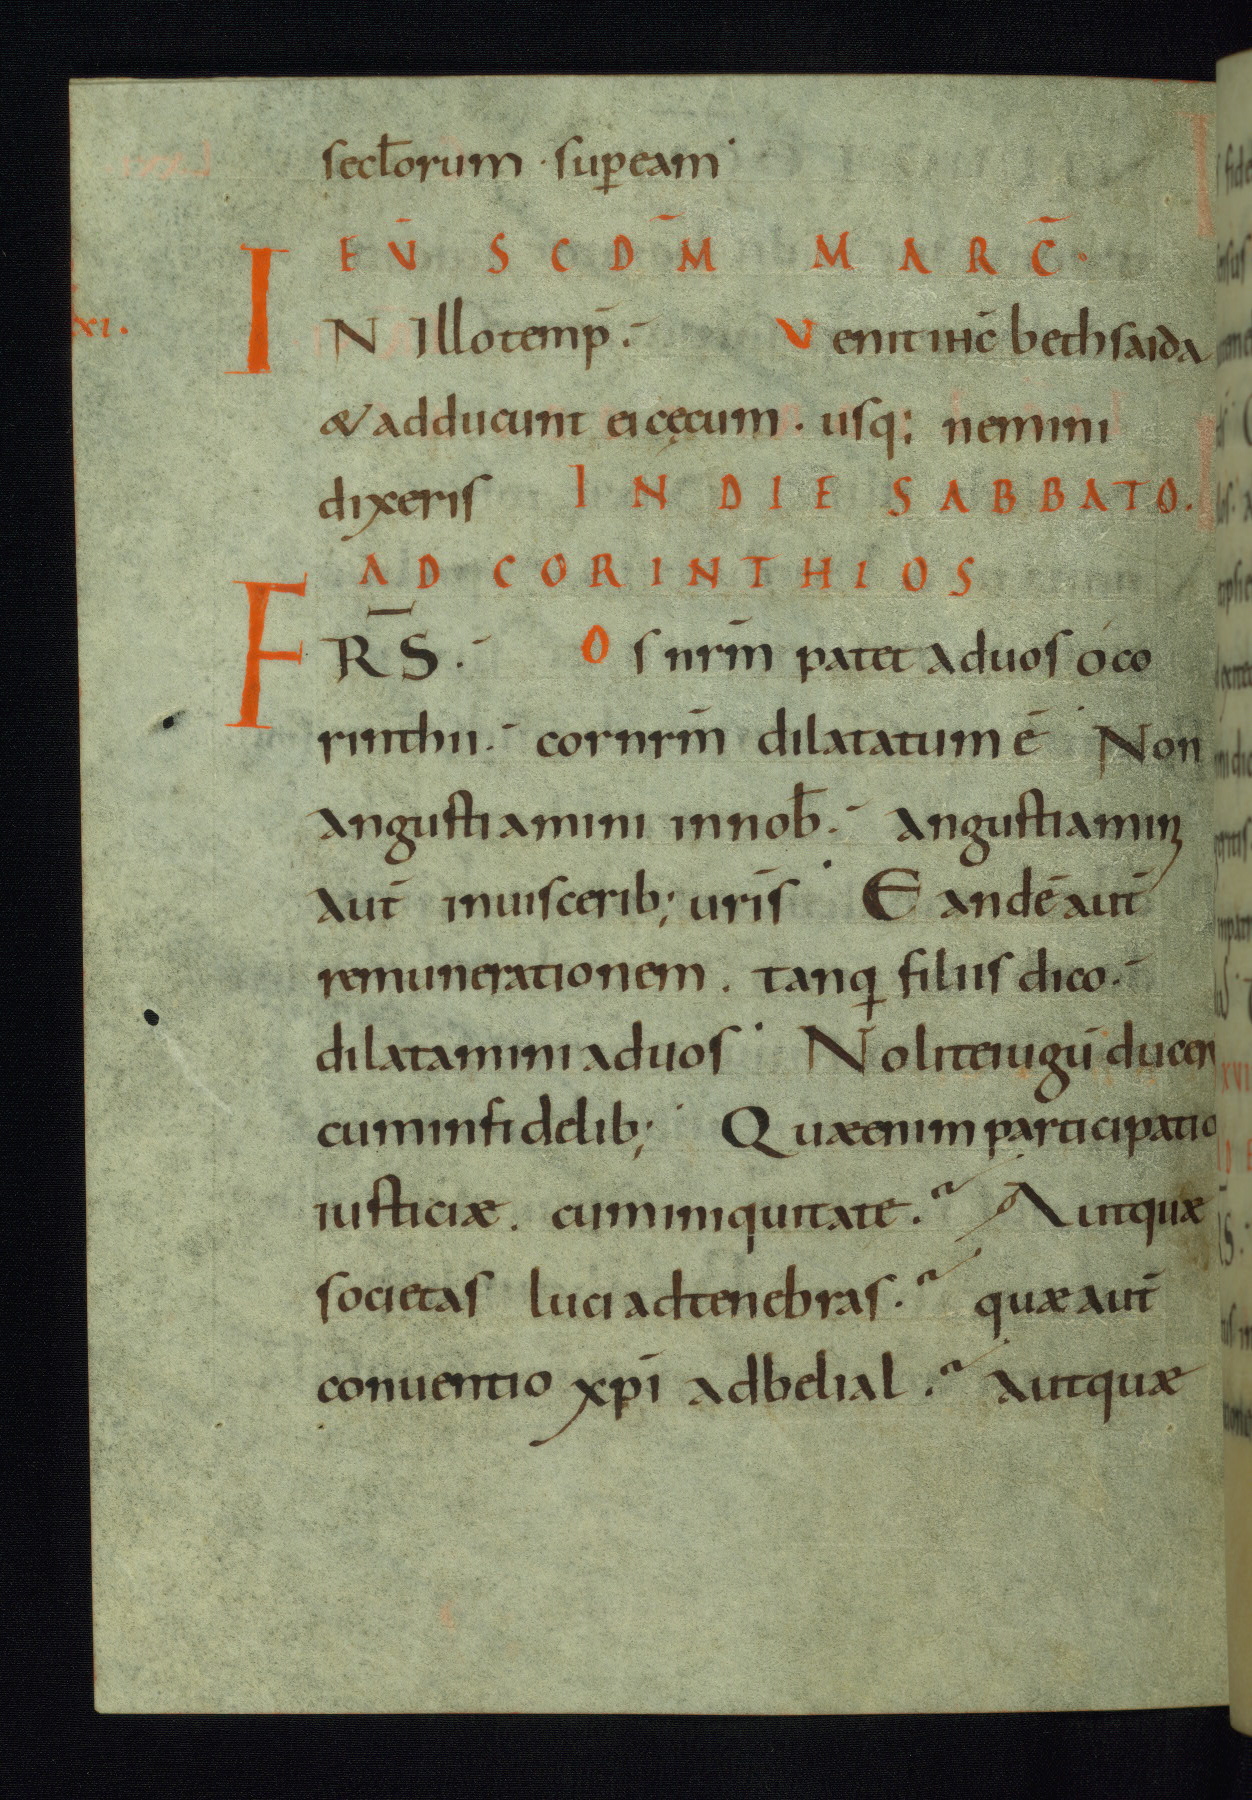 sect̄orum · sup̱eam·
EV̄ SCDM̄ MARC̄·
xı.
IN Illotemp̄:- Venit ih̄c bethsaida
&adducunt ei cęcum. usq; nemini
dixeris IN DIE SABBATO.
AD CORINTHIOS
FR̄S:- Os nrm̄ patet aduos óco
rinthii:- cornrm̄ dilatatumē· Non
angustiamini innob̄:- angustiamini
aut̄ inuiscerib; uris̄· Eandēaut̄
remunerationem. tanq̱ filiis dico:-
dilataminiaduos· Noliteiugū ducere
cuminfidelib;· Quæenim participatio
iusticiæ. cuminiquitate. Autquæ
societas luciadtenebras. quæaut̄
conuentio xpī adbelial. autquæ